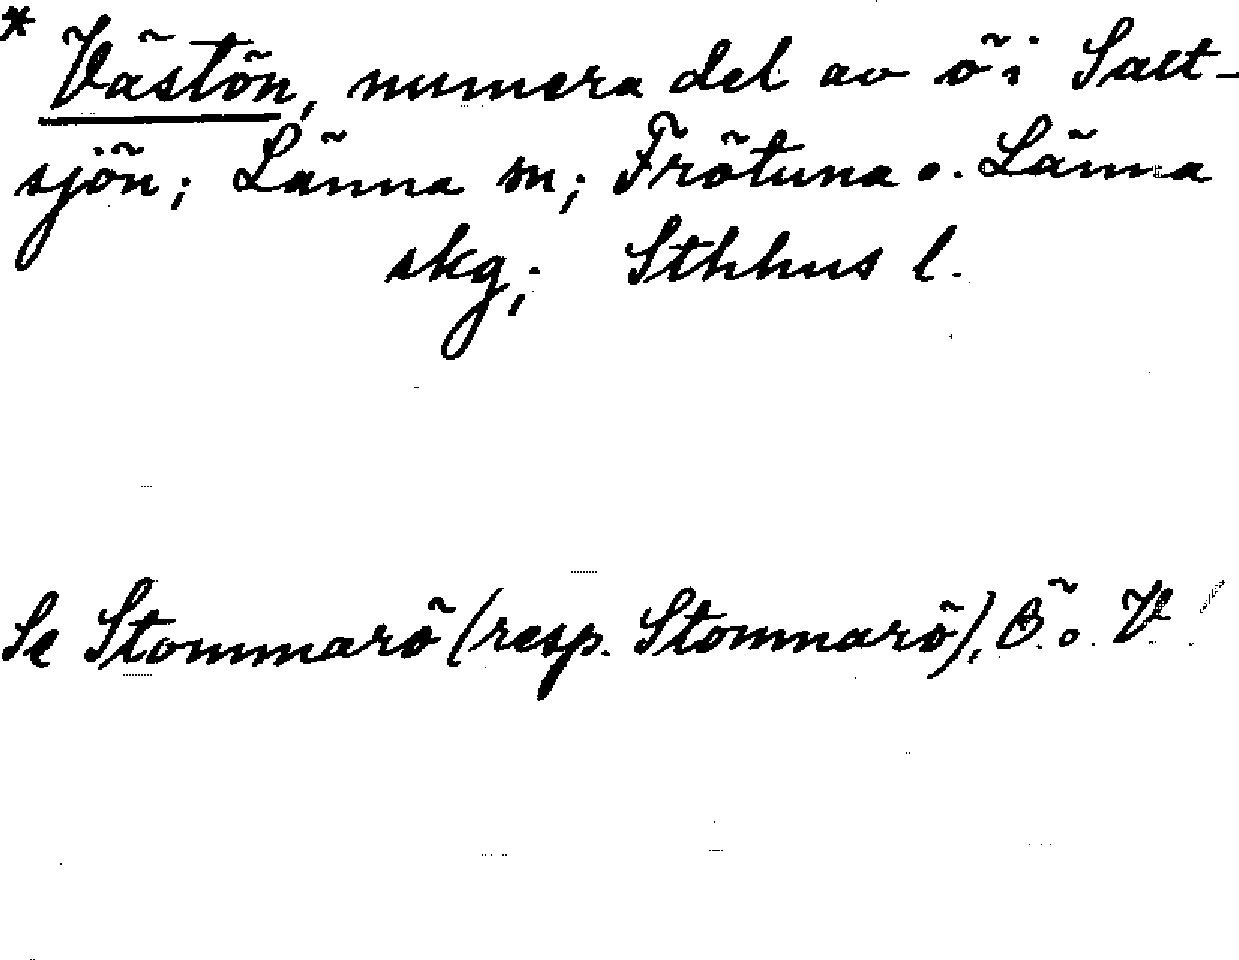 * Västön, numera del av ö i Salt-
sjön; Länna sn; Frötuna o. Länna
skg; Sthlms l.
Se Stommarö (resp. Stommarö), Ö. o. V.